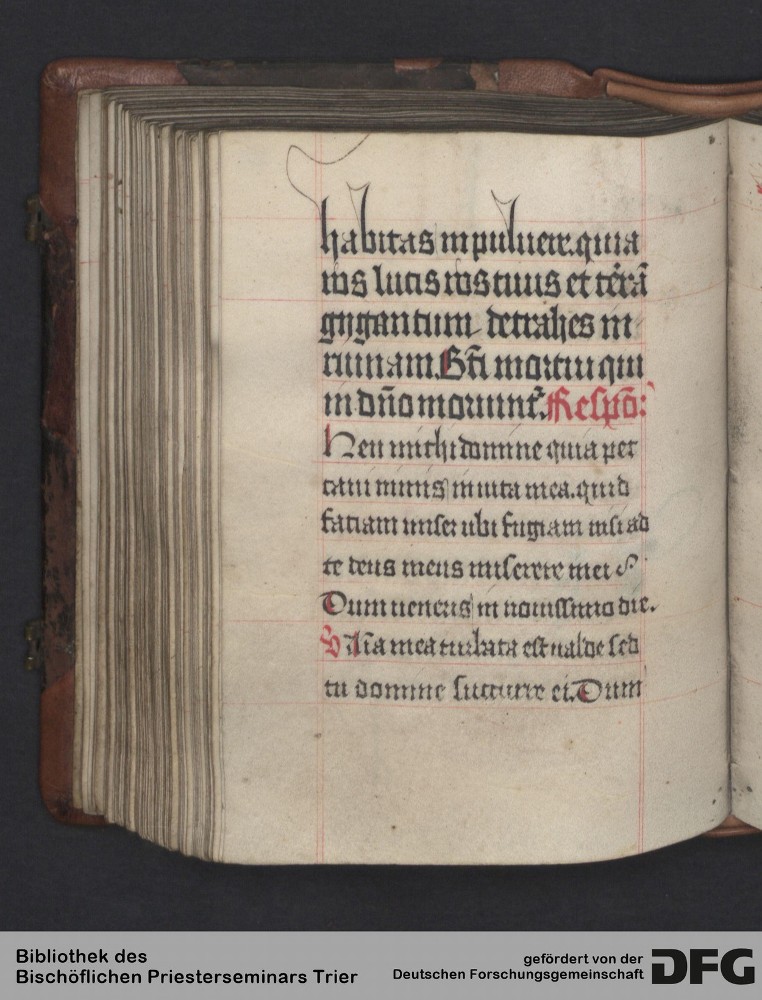 habitas in puluere. quia
ros lucis ros tuus et terā
gygantum detrahes in
ruinam. Bti mortui qui
in dño moriunt᷑. Respō:
Heu michi domine quia pec
caui nimis in uita mea. quid
faciam miser ubi fugiam nisi ad
te deus meus miserere mei
Dum ueneris in nouissimo die.
V Aīa mea turbata est ualde sed
tu domine succurre ei. Dum
Bibliothek des
Bischöflichen Priesterseminars Trier
gefördert von der
Deutschen Forschungsgemeinschaft
DFG